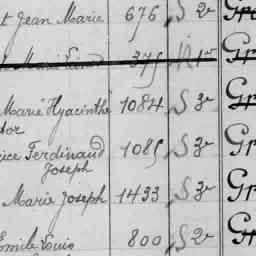 t Jean Marie 676 S 2e Gr
375 1er Gr
Marie Hyacinthe 1084 S 3e Gr
tor
ice Ferdinand 1085 S 3e Gr
Joseph
Marie Joseph 1433 S 3e Gr
Emile Louis 800 S 2e Gr